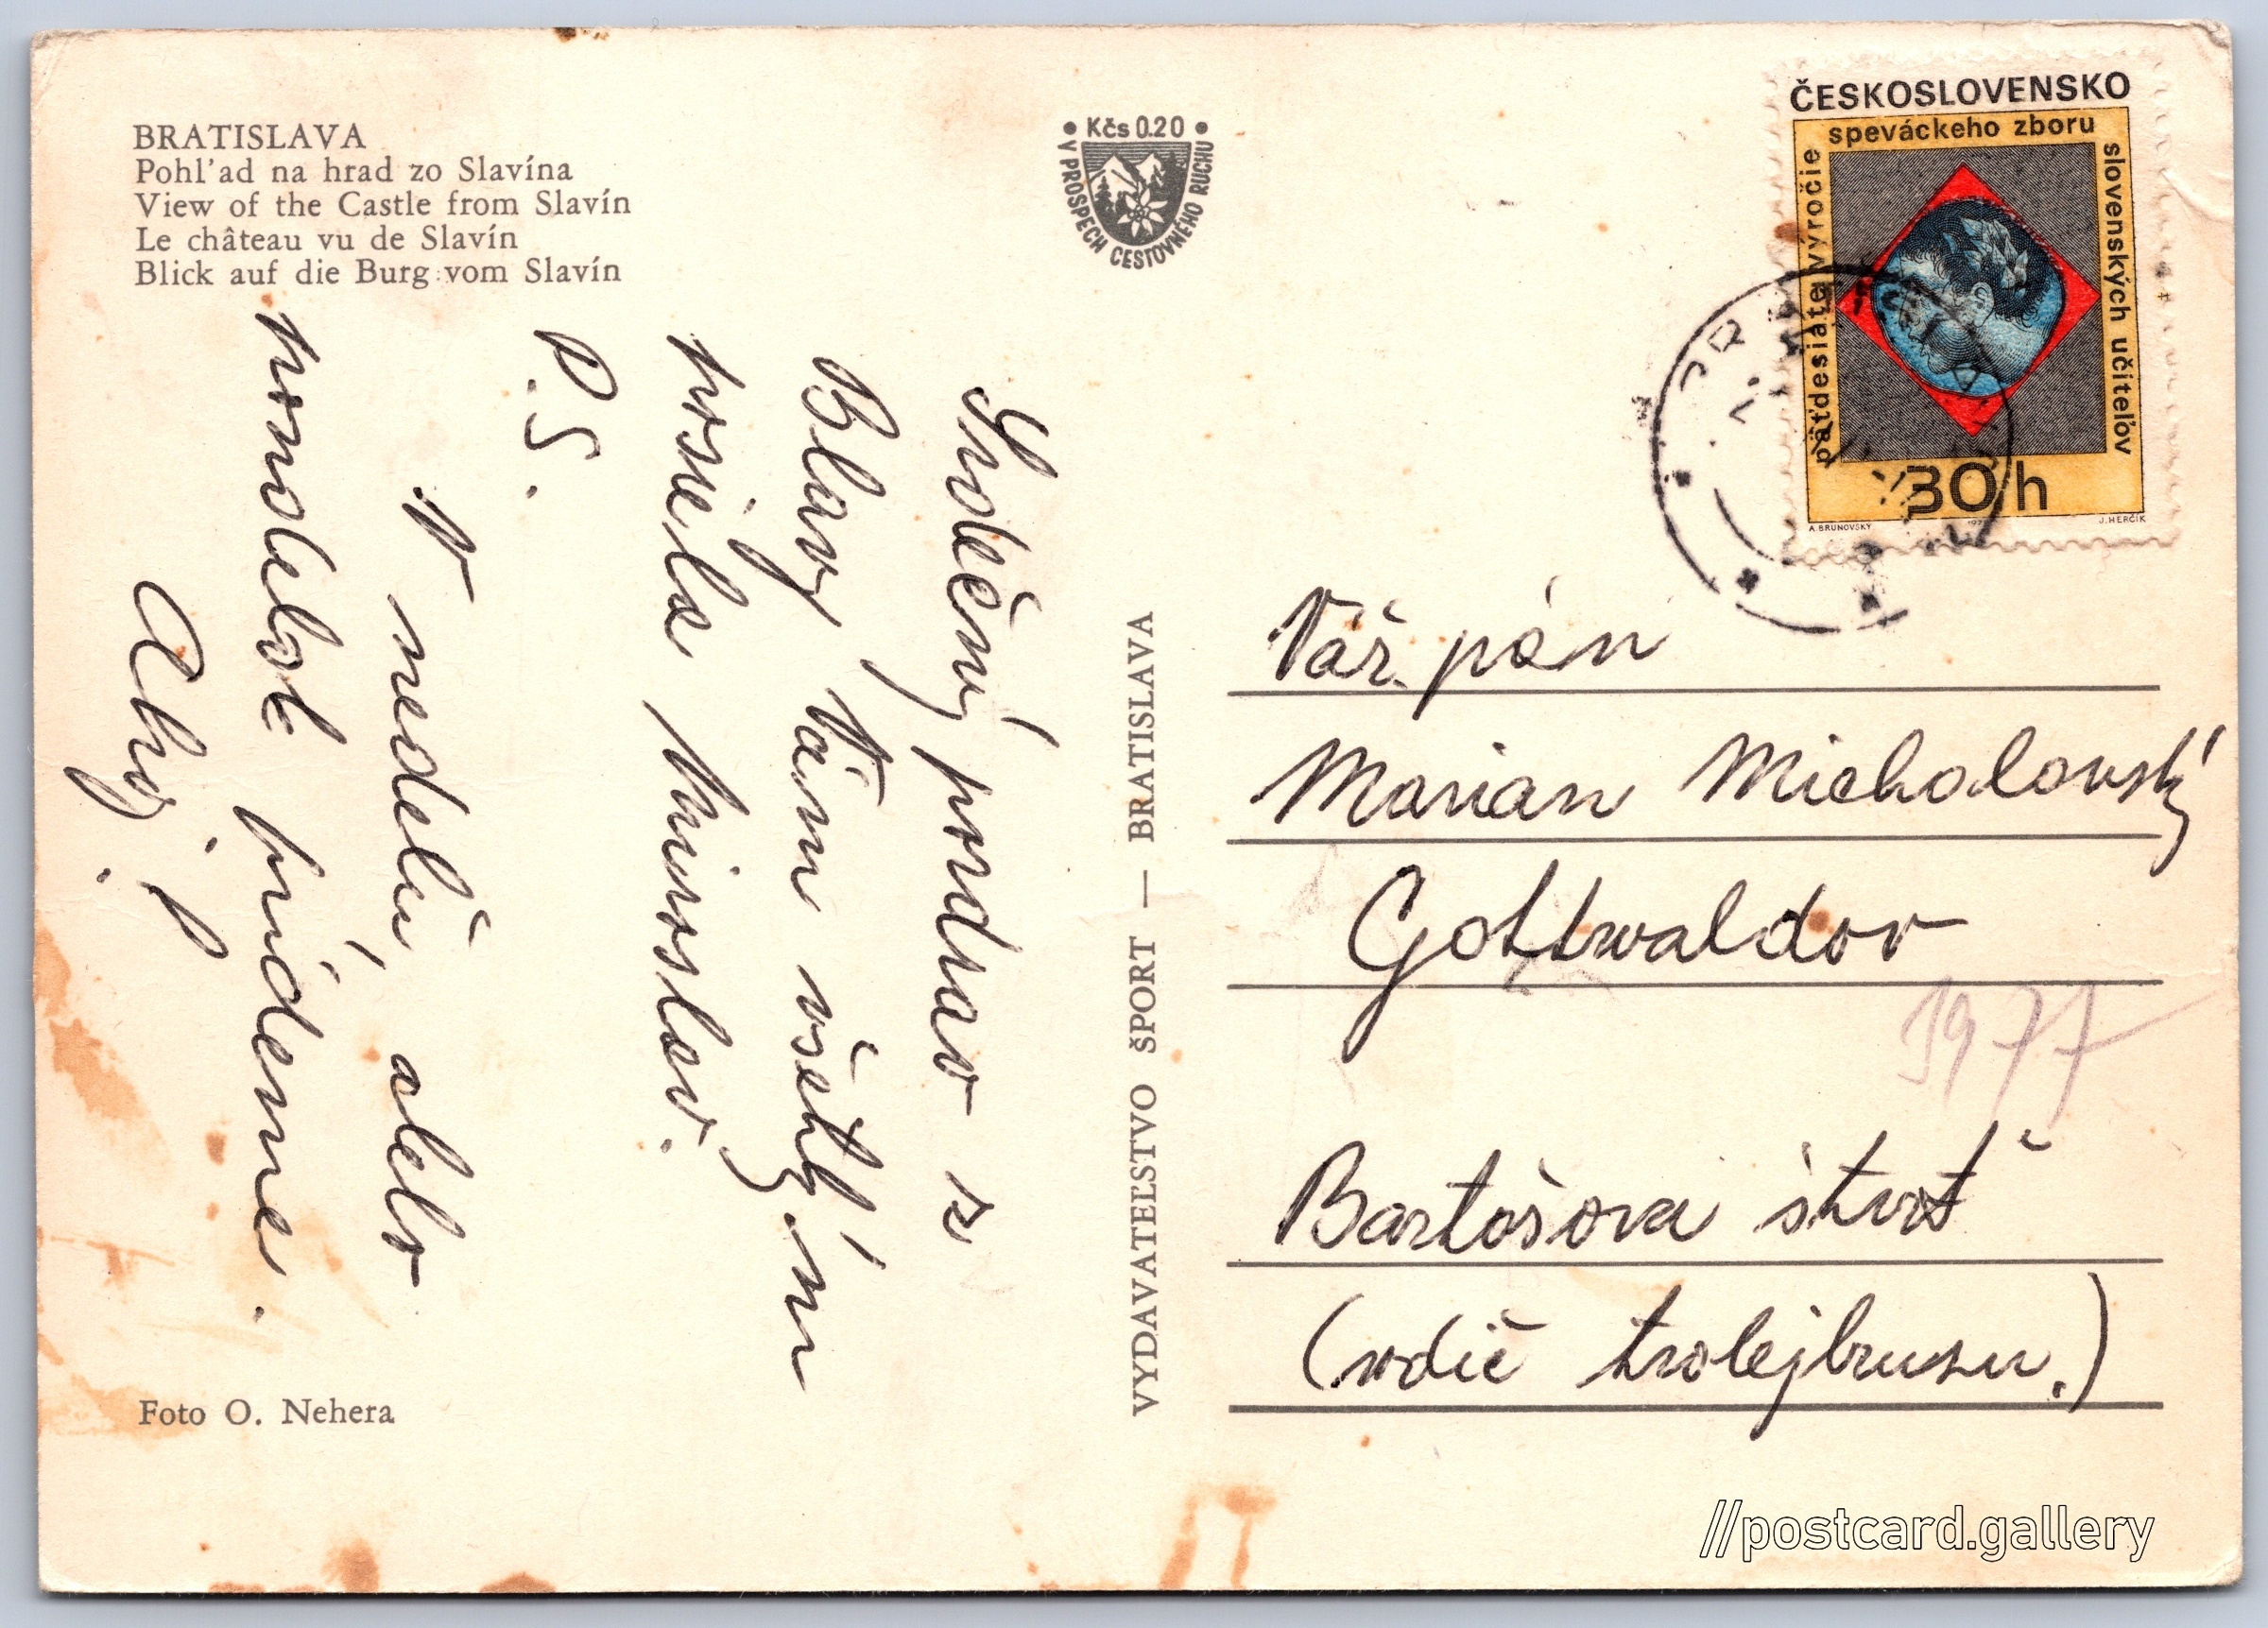 BRATISLAVA
Pohl'ad na hrad zo Slavína
View of the Castle from Slavín
Le château vu de Slavín
Blick auf die Burg vom Slavín
Srdečný pozdrav z
Blavy Vám všetkým
posiela Miroslav.
P.S.
V nedeľu, alebo
pondelok prídeme.
Ahoj.
Foto O. Nehera
• Kčs 0.20 •
V PROSPECH CESTOVNÉHO RUCHU
VYDAVATEĽSTVO ŠPORT — BRATISLAVA
ČESKOSLOVENSKO
päťdesiate výročie
speváckeho zboru
slovenských učiteľov
30h
A. BRUNOVSKÝ
J. HERČÍK
Váž. pán
Marian Michalovský
Gottwaldov
1977
Bartošova štvrť
(vodič trolejbusu.)
//postcard.gallery